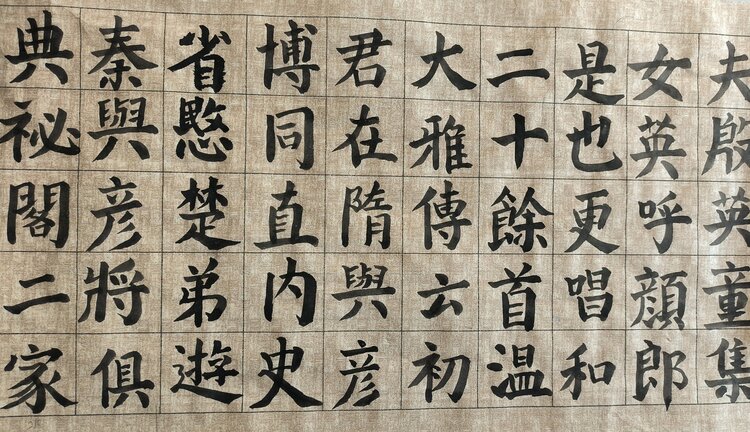 夫殷英童集
女英呼顏郎
是也更唱和
二十餘首温
大雅傳云初
君在隋與彦
博同直内史
省愍楚弟遊
秦與彦將俱
典祕閣二家